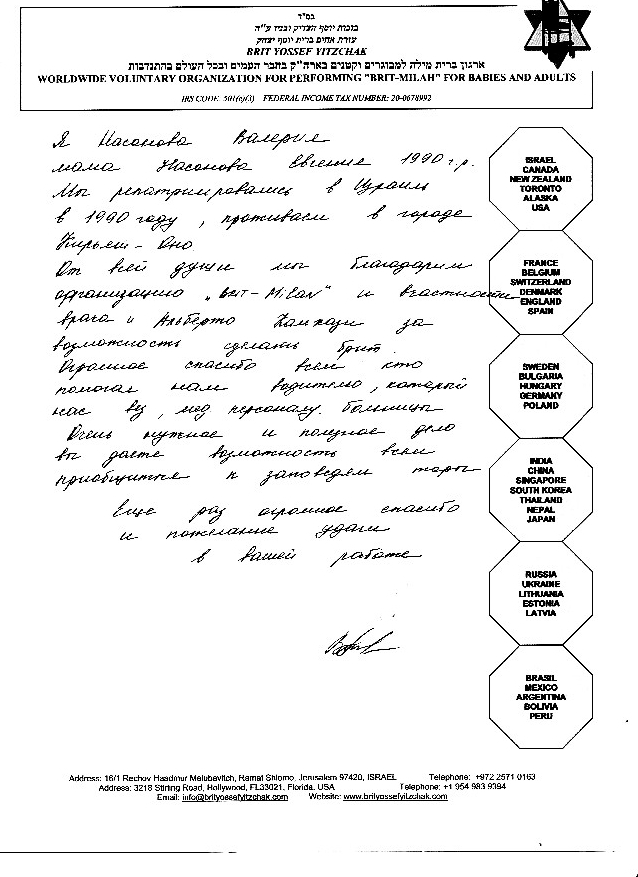 בס"ד
בזכות יוסף הצדיק ובניו ע"ה
עזרת אחים ברית יוסף יצחק
BRIT YOSSEF YITZCHAK
ארגון ברית מילה למבוגרים וקטנים בארה"ק בחבר העמים ובכל העולם בהתנדבות
WORLDWIDE VOLUNTARY ORGANIZATION FOR PERFORMING "BRIT-MILAH" FOR BABIES AND ADULTS
IRS CODE 501(c)(3) FEDERAL INCOME TAX NUMBER: 20-0678992
Я Насонова Валерия
мама Насонова Евгение 1990 г.р.
Мы репатриировались в Израиль
в 1990 году, проживаем в городе
Кирьят-Оно
От всей души мы благодарим
организацию „Brit-Milah" и вчастности
врача и Альберто за
возможность сделать брит.
Огромное спасибо всем кто
помогал нам водителю, который
нас вез, мед. персоналу. больницы
Очень нужное и полезное дело
вы даете возможность всем
приобщится к заповедям торы
Еще раз огромное спасибо
и пожелание удачи
в вашей работе
ISRAEL
CANADA
NEW ZEALAND
TORONTO
ALASKA
USA
FRANCE
BELGIUM
SWITZERLAND
DENMARK
ENGLAND
SPAIN
SWEDEN
BULGARIA
HUNGARY
GERMANY
POLAND
INDIA
CHINA
SINGAPORE
SOUTH KOREA
THAILAND
NEPAL
JAPAN
RUSSIA
UKRAINE
LITHUANIA
ESTONIA
LATVIA
BRASIL
MEXICO
ARGENTINA
BOLIVIA
PERU
Address: 16/1 Rechov Haadmur Melubavitch, Ramat Shlomo, Jerusalem 97420, ISRAEL Telephone: +972 2571 0163
Address: 3218 Stirling Road, Hollywood, FL33021, Florida, USA Telephone: +1 954 983 9394
Email: info@brityossefyitzchak.com Website: www.brityossefyitzchak.com